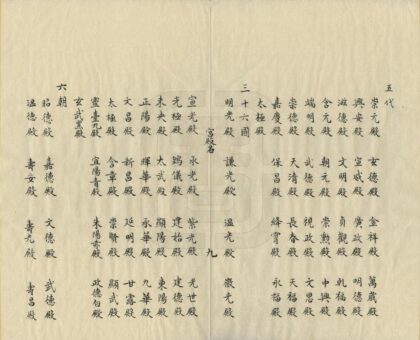 五代
崇元殿 玄德殿 金祥殿 萬歲殿
興安殿 宣威殿 廣政殿 明德殿
滋德殿 文明殿 貞觀殿 乾福殿
含元殿 朝元殿 崇勲殿 中興殿
端明殿 武德殿 視政殿 文思殿
崇德殿 天清殿 長春殿 天福殿
嘉慶殿 保昌殿 絳霄殿 永福殿
太極殿
三十六國
明光殿 謙光殿 溫光殿 徽光殿
宮殿名 九
宣光殿 永光殿 紫光殿 光世殿
光極殿 端儀殿 建始殿 建德殿
未央殿 太武殿 顯陽殿 東陽殿
正陽殿 暉華殿 永華殿 九華殿
文昌殿 新昌殿 延明殿 甘露殿
太極殿 含章殿 崇賢殿 顯武殿
靈臺九殿 宜陽青殿 朱陽赤殿 政德白殿
玄武黑殿
六朝
昭德殿 嘉德殿 文德殿 武德殿
溫德殿 壽安殿 壽光殿 壽昌殿